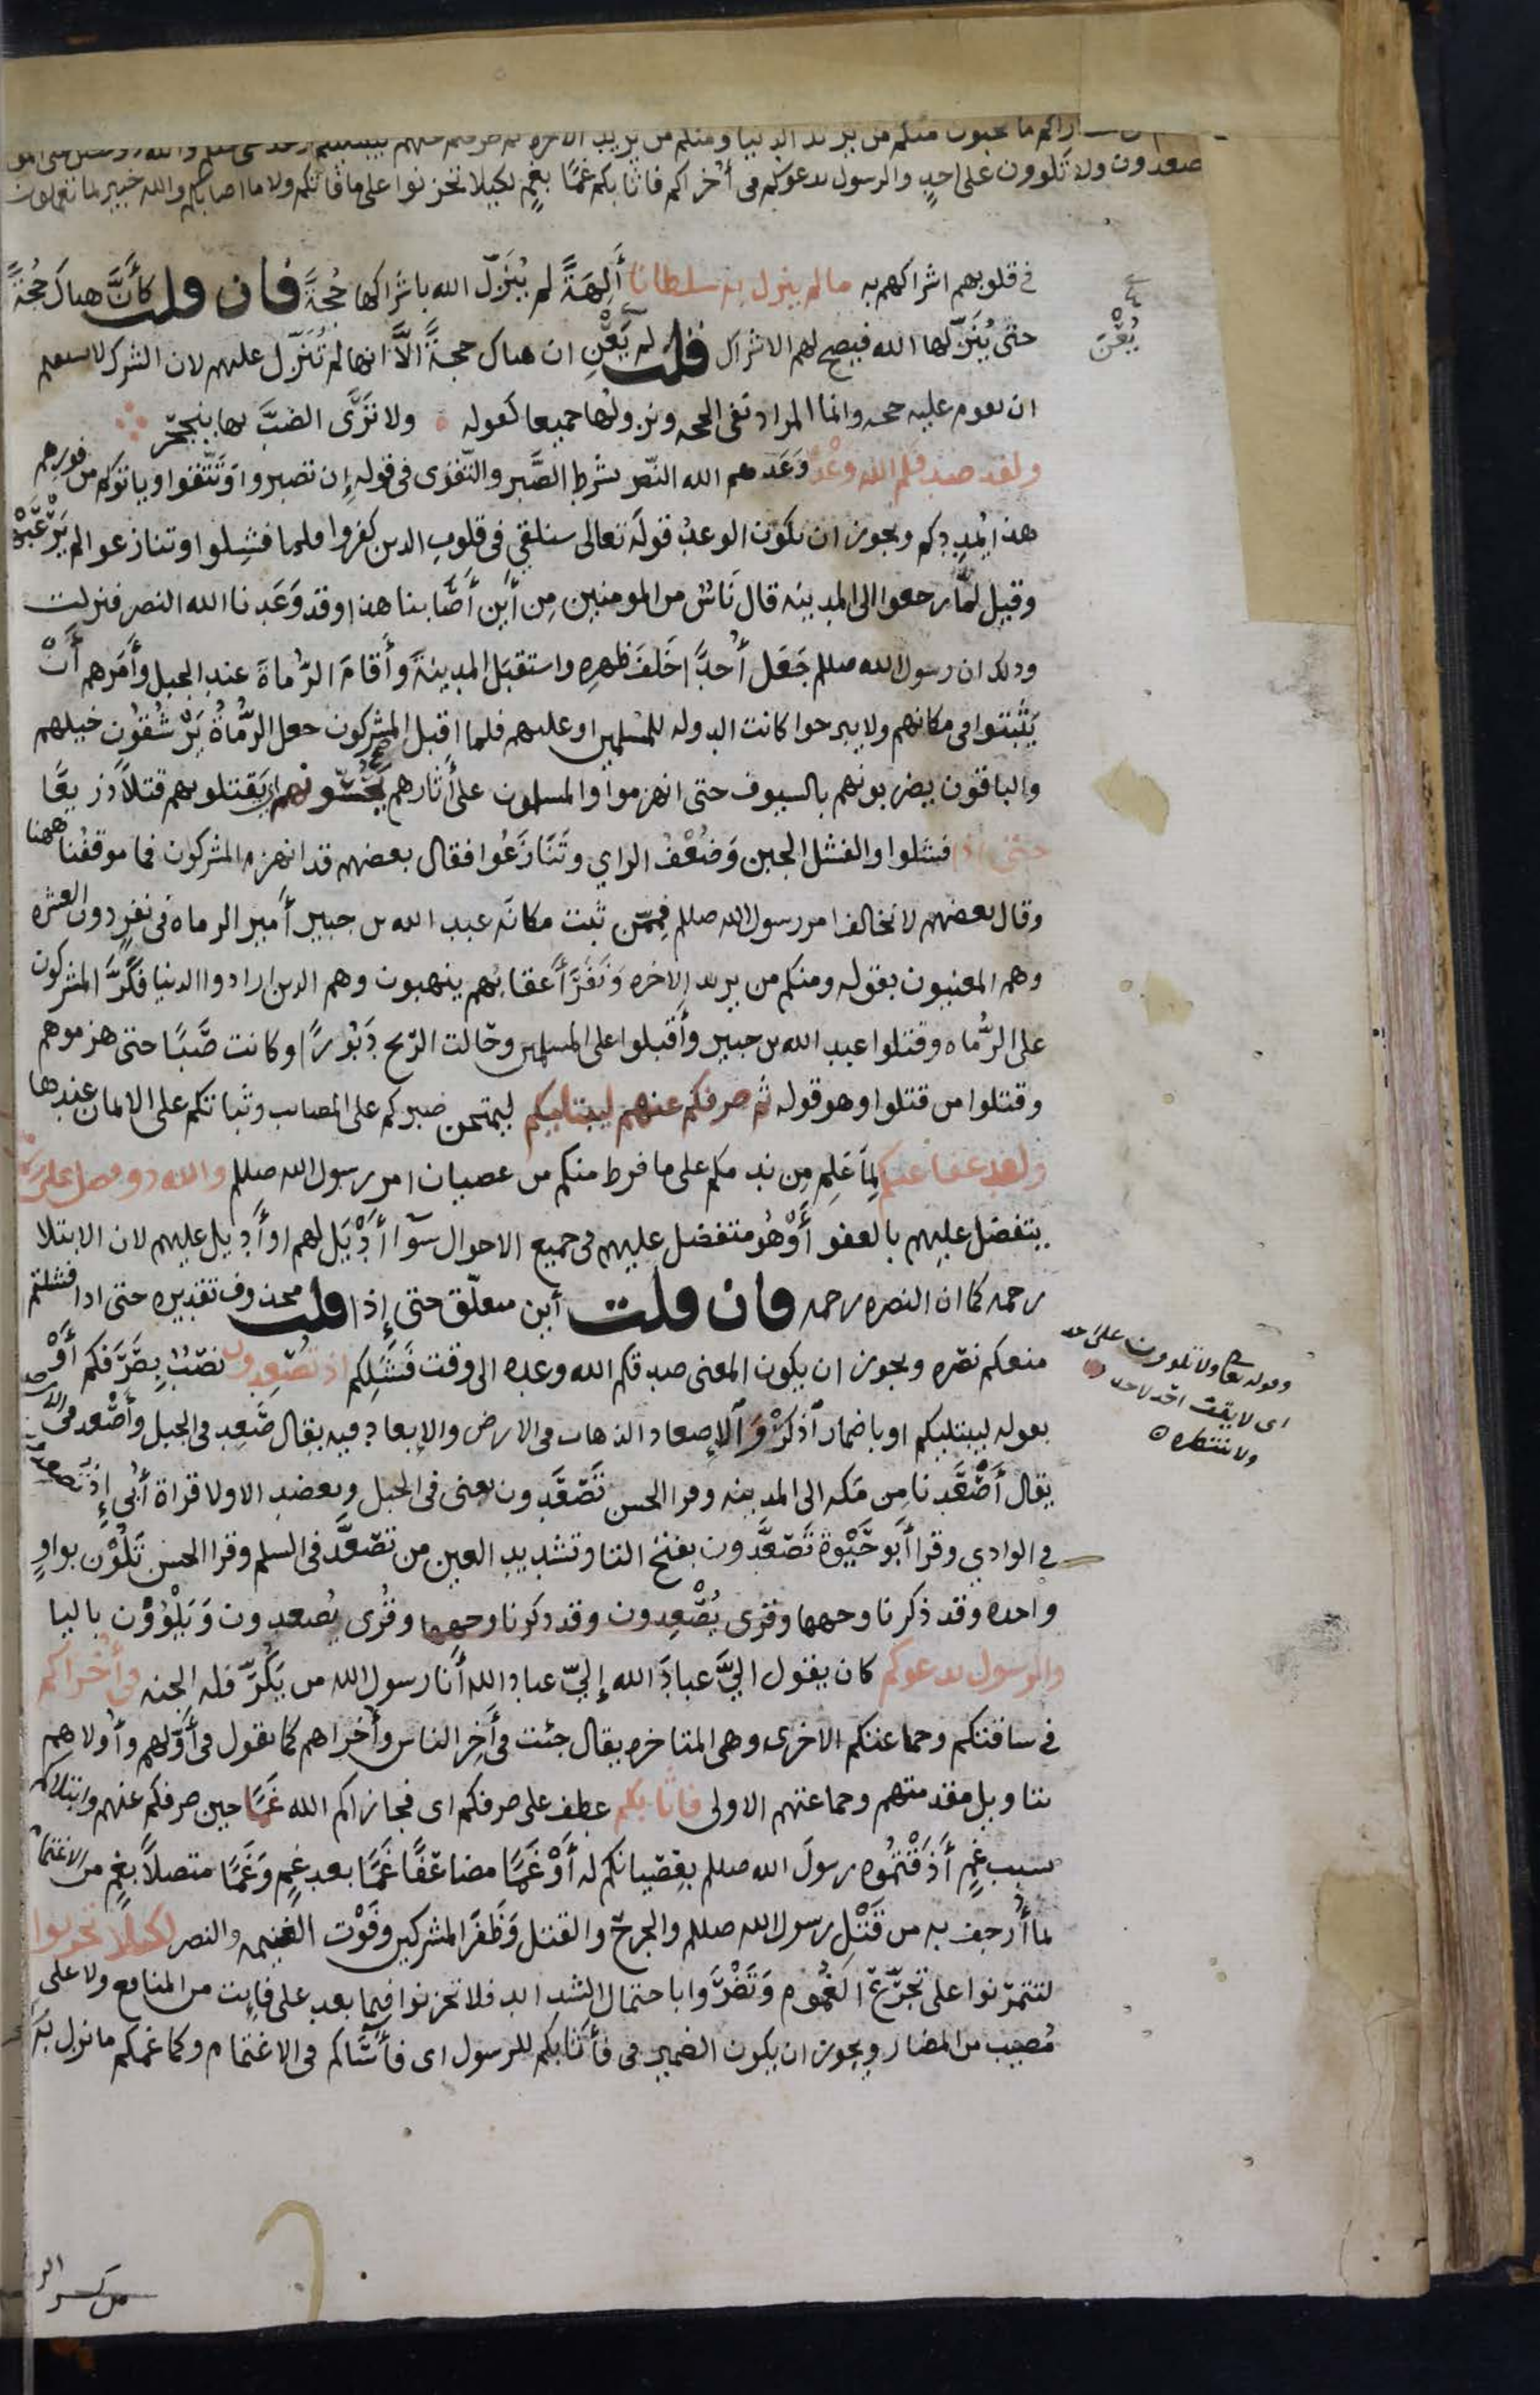 اراكم ما تحبون منكم من يريد الدنيا ومنكم من يريد الاخره ثم صرفكم عنهم ليبتليكم
تصعدون ولا تَلوون على احدٍ والرسول يدعوكم فى أُخراكم فاثابكم غمًّا بغمٍ لكيلا تحزنوا على ما فاتكم ولا ما اصابكم والله خبير بما تعملون
فى قلوبهم اشراكهم به ما لم ينزل به سلطانا أَلِهَةً لم يُنَزِّل الله باشراكها حُجَةً فان قلت كأَنَّ هناك حُجَةً
حتى يُنَزِّلها الله فيصح لهم الاشراك قلت لم يَعْنِ ان هناك حجةً الَّا انها لم تُنَزّل عليهم لان الشرك لا يستقيم
يَعْنِ
ان يقوم عليه حجه وانما المراد نفى الحجه ونزولها جميعا كقوله ولا تَرَى الضبَّ بها ينجحر
ولقد صدقكم الله وعْدَه وَعَدهم الله النّصر بشرط الصَّبر والتّقوى فى قوله إِن تصبروا وَتتّقوا وياتوكم من فورهم
هذا يُمدِدكم ويجوز ان يكون الوعدُ قولَه تعالى سنلقي فى قلوبِ الذين كفروا فلما فشِلوا وتنازعوا لم يَرْعَبْهم
وقيل لمّا رجعوا الى المدينه قال نَاسٌ من المومنين مِن أَين أَصَابنا هذا وقد وَعَدنا الله النصر فنزلت
وذلك ان رسول الله صللم جَعَل أُحدًا خَلفَ ظهرِه واستقبَل المدينةَ وأَقامَ الرُّماةَ عند الجبل وأَمرهم أَنْ
يَثْبُتوا فى مكانهم ولا يبرحوا كانت الدوله للمسلمين او عليهم فلما اقبل المشركون جعل الرُّمَاةُ يَرْشُقُون خيلهم
والباقُون يضربونهم بالسيوف حتى انهزموا والمسلمون على أثارهم يَحُسّونهم اى يَقتلونهم قتلاً ذريعًا
حتى إذا فشلوا والفشل الجبن وَضُعْفُ الراي وتَنَازَعُوا فقال بعضهم قد انهزم المشركون فما موقفُنا ههنا
وقال بعضهم لا نخالف امر رسول الله صللم فمِمّن ثبت مكانَه عبد الله بن جبير أَمير الرماه فى نفرٍ دون العشره
وهم المعنيون بقوله ومنكم من يريد الاخره وَنَفَرَ أَعقابُهم ينهبون وهم الذين ارادوا الدنيا فكَرَّ المشركون
على الرُّماه وقتلوا عبد الله بن جبير وأَقبلوا على المسلمين وحَالت الرّيح دَبُورًا وكانت صَبًا حتى هزموهم
وقتلوا من قتلوا وهو قوله ثم صرفكم عنهم ليبتليكم ليمتحن صبركم على المصايب وثباتكم على الايمان عندها
ولقد عفا عنكم لِمَا عَلِمَ مِن ندمكم على ما فرط منكم من عصيان امر رسول الله صللم والله ذو فضل على
يتفضل عليهم بالعفو أَوْ هُو متفضل عليهم فى جميع الاحوال سوآ أُدِيْلَ لهم او أُديل عليهم لان الابتلا
رحمه كما ان النصره رحمه فان قلت أين متعلّق حتى إِذا قلت محذوف تقديره حتى اذا فشلتم
منعكم نصره ويجوز ان يكون المعنى صدقكم الله وعده الى وقت فشَلِكم اذ تُصْعِدون نصْبٌ بِصَرَفكم أَوْ
بقوله ليبتليكم او باضمار اذكرْ وَالإِصعاد الذهاب فى الارض والإِبعاد فيه يقال صَعِد فى الجبل وأَصْعَد فى الارض
وقوله تعالى ولا تلوون على احد
اى لا يقف احد لاحد
ولا ينتظره
يقال أَصْعَدنا مِن مَكه الى المدينه وقرا الحسن تَصْعَدون يعنى فى الجبل ويعضد الاولا قراة أُبيٍ إِذ تصعدون
فى الوادي وقرا أَبو حَيْوة تَصَعَّدون بفتح التا وتشديد العين من تَصعَّد فى السلم وقرا الحسن تَلُوْن بواوٍ
واحده وقد ذكرنا وجهها وقرى يُصْعِدون وقد ذكرنا وجهها وقُرى يُصعدون وَيَلْوُوْن باليا
والرسول يدعوكم كان يقول اليَّ عبادَ الله إِليّ عباد الله أَنا رسول الله من يَكُرّ فله الجنه فى أُخْراكم
فى ساقتكم وجماعتكم الاخرى وهى المتاخره يقال جئت فى أَخِر الناس وأُخراهم كما يقول فى أَوَّلهم وأُولاهم
بتاويل مقدمتهم وجماعتهم الاولى فاثابكم عطف على صرفكم اى فجازاكم الله غَمًّا حين صرفكم عنهم وابتلاكم
بسبب غَمٍ أَذَقْتُمُوه رسولَ الله صللم بِعصْيانكم له أَوْ غَمًّا مضاعَفًا غَمًّا بعد غمٍ وَغَمًّا متصلاً بغمٍ من الاغتمام
لما أُرجف به من قَتْلِ رسول الله صللم والجرح والقتل وَظَفَر المشركين وفَوْت الغنيمه والنصر لكيلا تحزنوا
لتتمرّنوا على تجرّع الغُموم وَتَضْرَوا باحتمال الشدايد فلا تحزنوا فيما بعد على فايت من المنافع ولا على
مُصيب من المضار ويجوز ان يكون الضمير فى فأَثابكم للرسول اى فأَسَاكم فى الاغتمام وكما غمكم ما نزل به